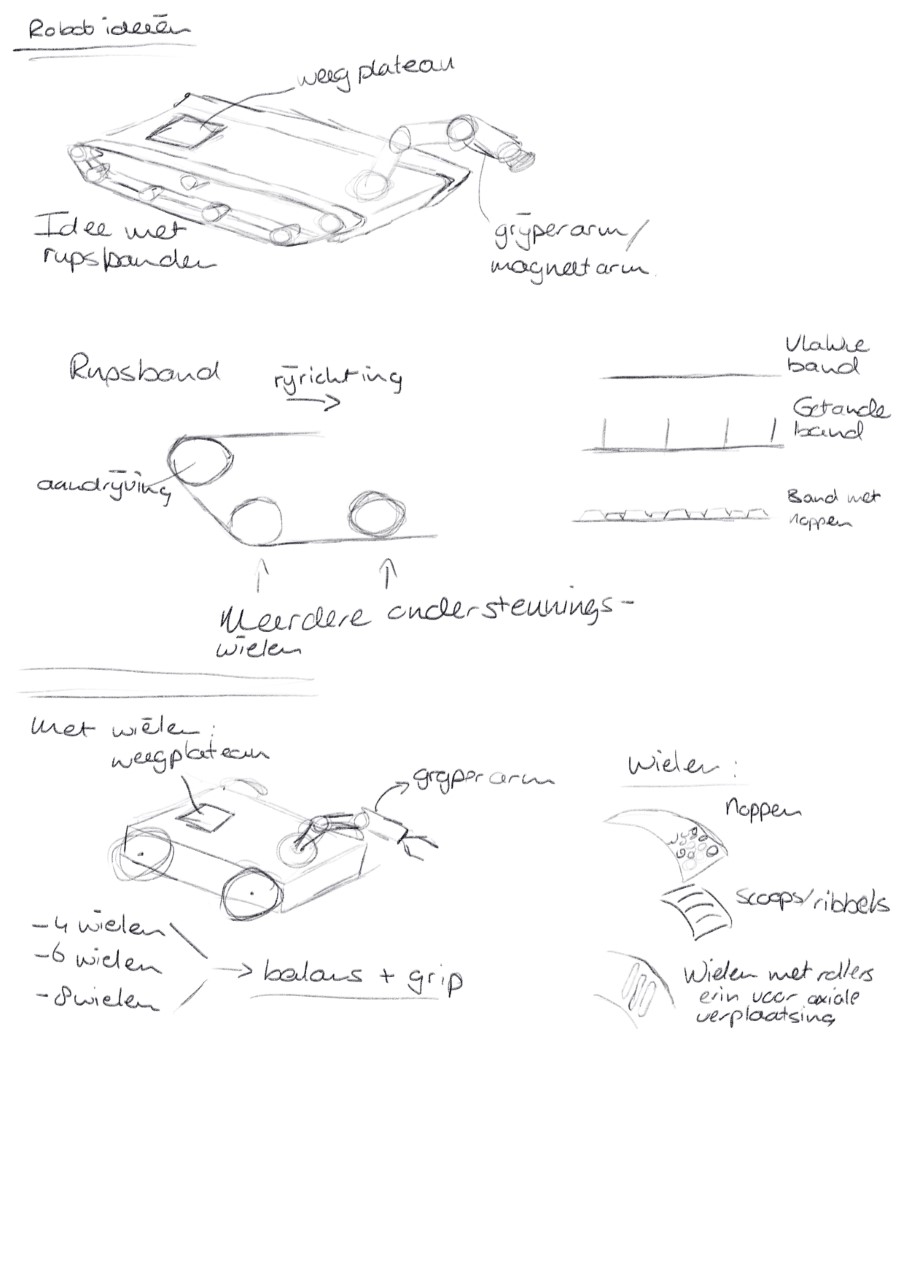 Robot ideeën
weegplateau
Idee met
rupsbanden
grijperarm/
magneetarm
Rupsband
rijrichting
aandrijving
Meerdere ondersteunings-
wielen
Vlakke
band
Getande
band
Band met
noppen
Met wielen:
weegplateau
grijperarm
-4 wielen
-6 wielen
-8 wielen
→ balans + grip
Wielen:
Noppen
Scoops/ribbels
Wielen met rollers
erin voor axiale
verplaatsing